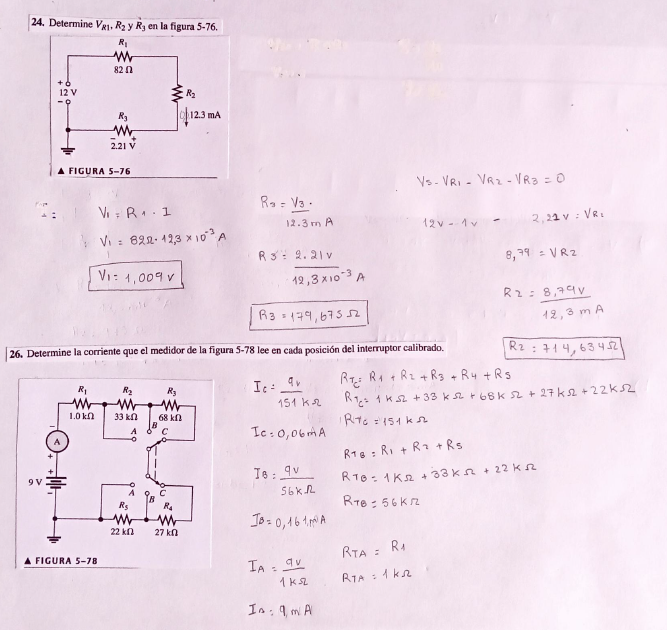 24. Determine VR1, R2 y R3 en la figura 5-76.
R1
82 Ω
+
12 V
−
R2
12.3 mA
R3
− +
2.21 V
▲ FIGURA 5-76
V1 = R1 · I
V1 = 82Ω · 12,3 × 10⁻³ A
V1 = 1,009 v
R3 = V3
12.3 m A
R3 = 2.21 v
12,3 × 10⁻³ A
R3 = 179,675 Ω
Vs - VR1 - VR2 - VR3 = 0
12v - 1v - 2,21v = VR2
8,79 = VR2
R2 = 8,79v
12,3 m A
R2 = 714,634 Ω
26. Determine la corriente que el medidor de la figura 5-78 lee en cada posición del interruptor calibrado.
R1 R2 R3
1.0 kΩ 33 kΩ 68 kΩ
A B C
−
A
+
9 V
+
−
A B C
R5 R4
22 kΩ 27 kΩ
▲ FIGURA 5-78
IC = 9v
151 k Ω
IC = 0,06 mA
RTC = R1 + R2 + R3 + R4 + R5
RTC = 1 k Ω + 33 k Ω + 68 k Ω + 27 k Ω + 22 k Ω
RTC = 151 k Ω
IB = 9v
56k Ω
IB = 0,161 mA
RTB = R1 + R2 + R5
RTB = 1KΩ + 33k Ω + 22 k Ω
RTB = 56k Ω
IA = 9v
1 k Ω
IA = 9 m A
RTA = R1
RTA = 1 k Ω